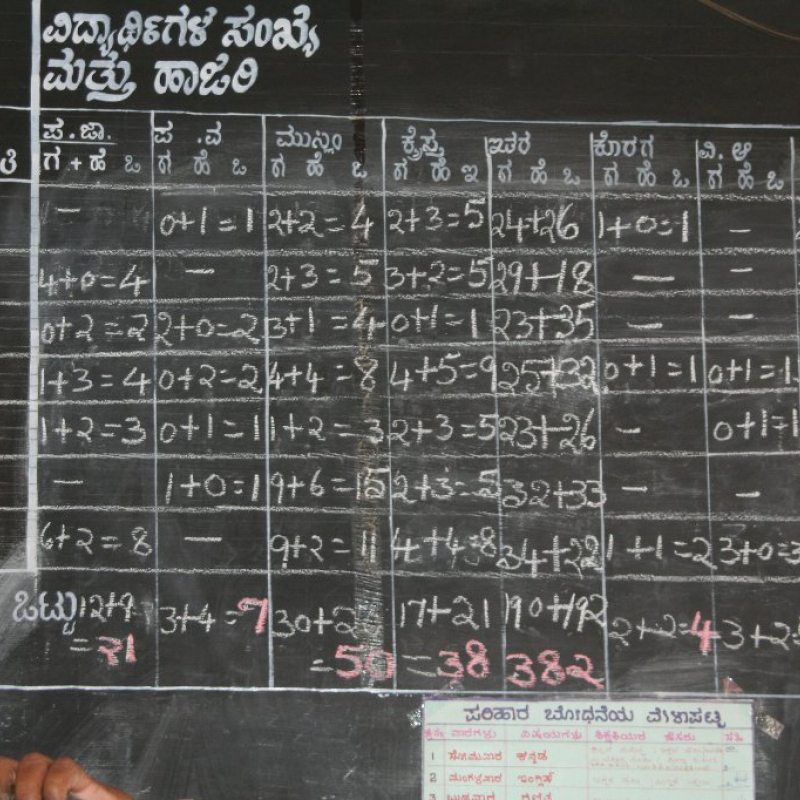 ವಿದ್ಯಾರ್ಥಿಗಳ ಸಂಖ್ಯೆ
ಮತ್ತು ಹಾಜರಿ
ಪ.ಜಾ. ಪ.ವ ಮುಸ್ಲಿಂ ಕ್ರೈಸ್ತ ಇತರ ಕೊರಗ ವಿ.ಆ
ಗ + ಹೆ ಒ ಗ ಹೆ ಒ ಗ ಹೆ ಒ ಗ ಹೆ ಇ ಗ ಹೆ ಒ ಗ ಹೆ ಒ ಗ ಹೆ ಒ
— 0+1=1 2+2=4 2+3=5 24+26 1+0=1 —
4+0=4 — 2+3=5 3+2=5 29+18 — —
0+2=2 2+0=2 3+1=4 0+1=1 23+35 — —
1+3=4 0+2=2 4+4=8 4+5=9 25+32 0+1=1 0+1=1
1+2=3 0+1=1 1+2=3 2+3=5 23+26 — 0+1=1
— 1+0=1 9+6=15 2+3=5 32+33 — —
6+2=8 — 9+2=11 4+4=8 34+22 1+1=2 3+0=3
ಒಟ್ಟು 12+9 3+4=7 30+2 17+21 190+192 2+2=4 3+2=
=21 =50 =38 382
ಪರಿಹಾರ ಬೋಧನೆಯ ವೇಳಾಪಟ್ಟಿ
ವಾರಗಳು ವಿಷಯಗಳು ಶಿಕ್ಷಕಿಯರ ಹೆಸರು ಸಹಿ
1 ಸೋಮವಾರ ಕನ್ನಡ
2 ಮಂಗಳವಾರ ಇಂಗ್ಲಿಷ್
3 ಬುಧವಾರ ಗಣಿತ